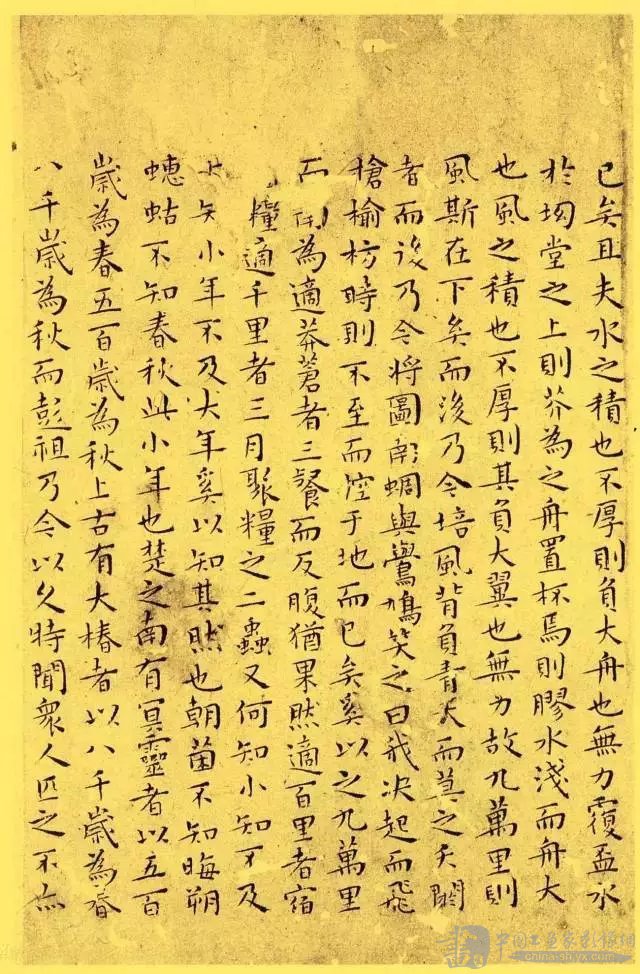 已矣且夫水之積也不厚則負大舟也無力覆盃水
於坳堂之上則芥為之舟置杯焉則膠水淺而舟大
也風之積也不厚則其負大翼也無力故九萬里則
風斯在下矣而後乃今培風背負青天而莫之夭閼
者而後乃今將圖南蜩與鷽鳩笑之曰我決起而飛
槍榆枋時則不至而控于地而已矣奚以之九萬里
而南為適莽蒼者三餐而反腹猶果然適百里者宿
糧適千里者三月聚糧之二蟲又何知小知不及
小年不及大年奚以知其然也朝菌不知晦朔
蟪蛄不知春秋此小年也楚之南有冥靈者以五百
歲為春五百歲為秋上古有大椿者以八千歲為春
八千歲為秋而彭祖乃今以久特聞衆人匹之不亦
中国书画家影像网
china-shyx.com